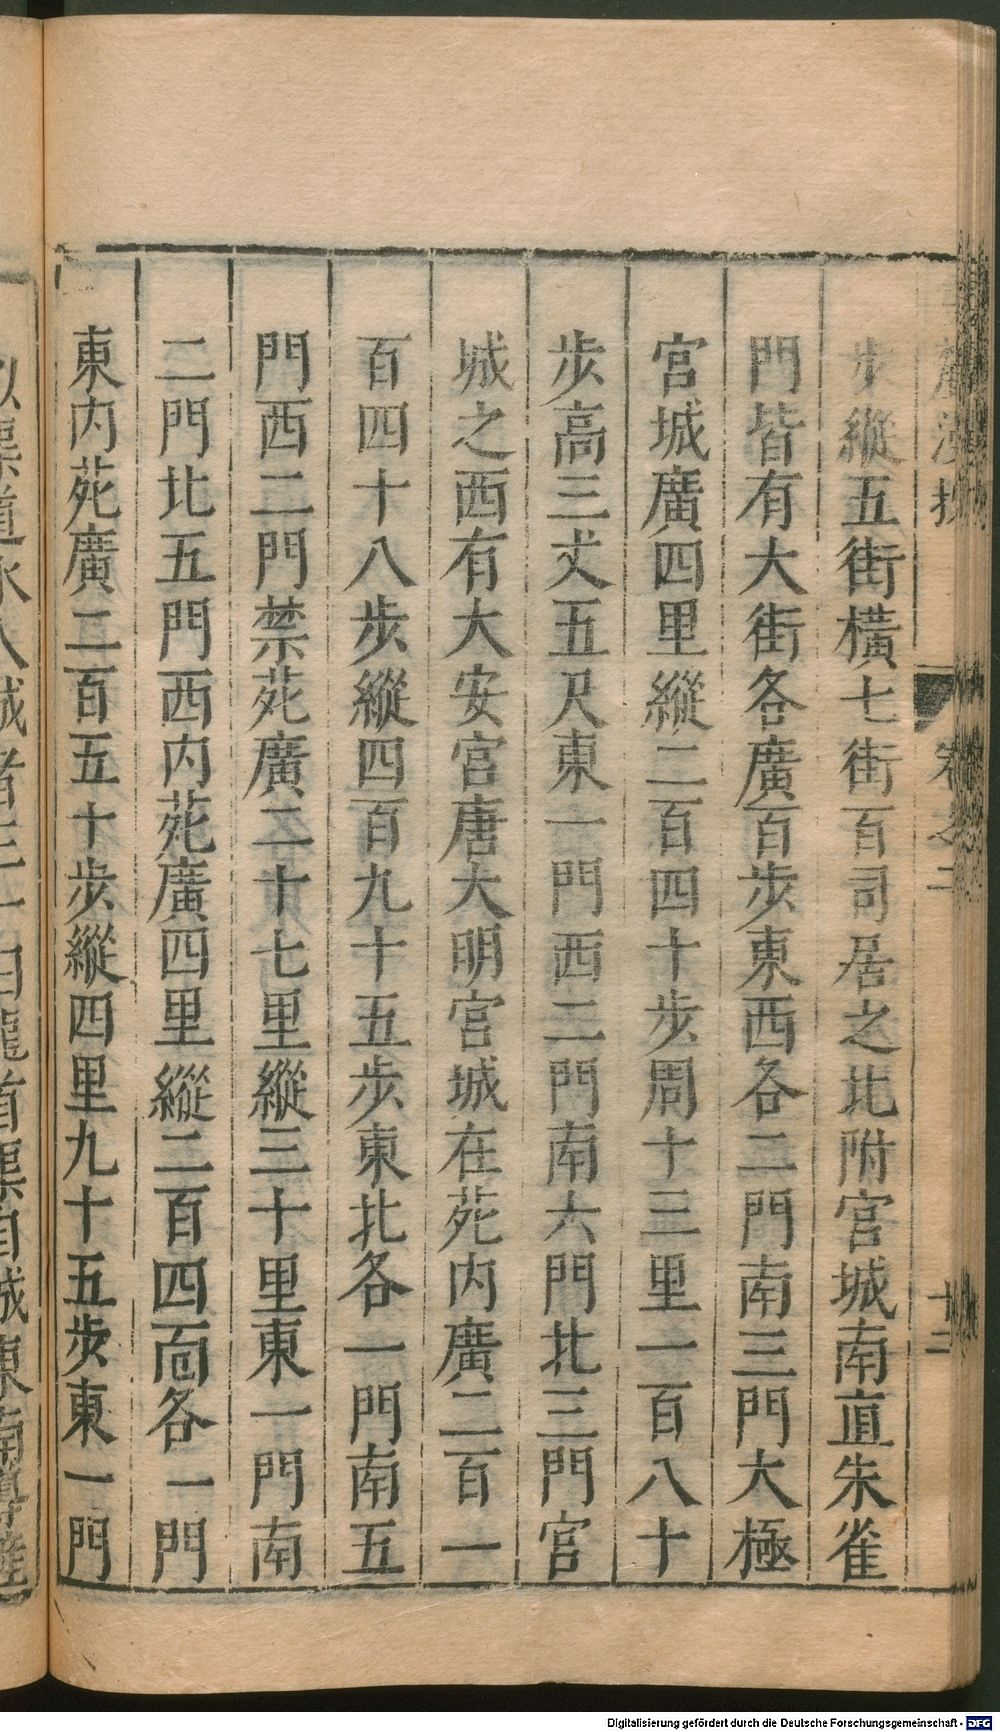 步縱五街橫七街百司居之北附宮城南直朱雀
門皆有大街各廣百步東西各二門南三門大極
宮城廣四里縱二百四十步周十三里一百八十
步高三丈五尺東一門西二門南六門北三門宮
城之西有大安宮唐大明宮城在苑内廣二百一
百四十八步縱四百九十五步東北各一門南五
門西二門禁苑廣二十七里縱三十里東一門南
二門北五門西内苑廣四里縱二百四面各一門
東内苑廣二百五十步縱四里九十五步東一門
卷之二
Digitalisierung gefördert durch die Deutsche Forschungsgemeinschaft - DFG